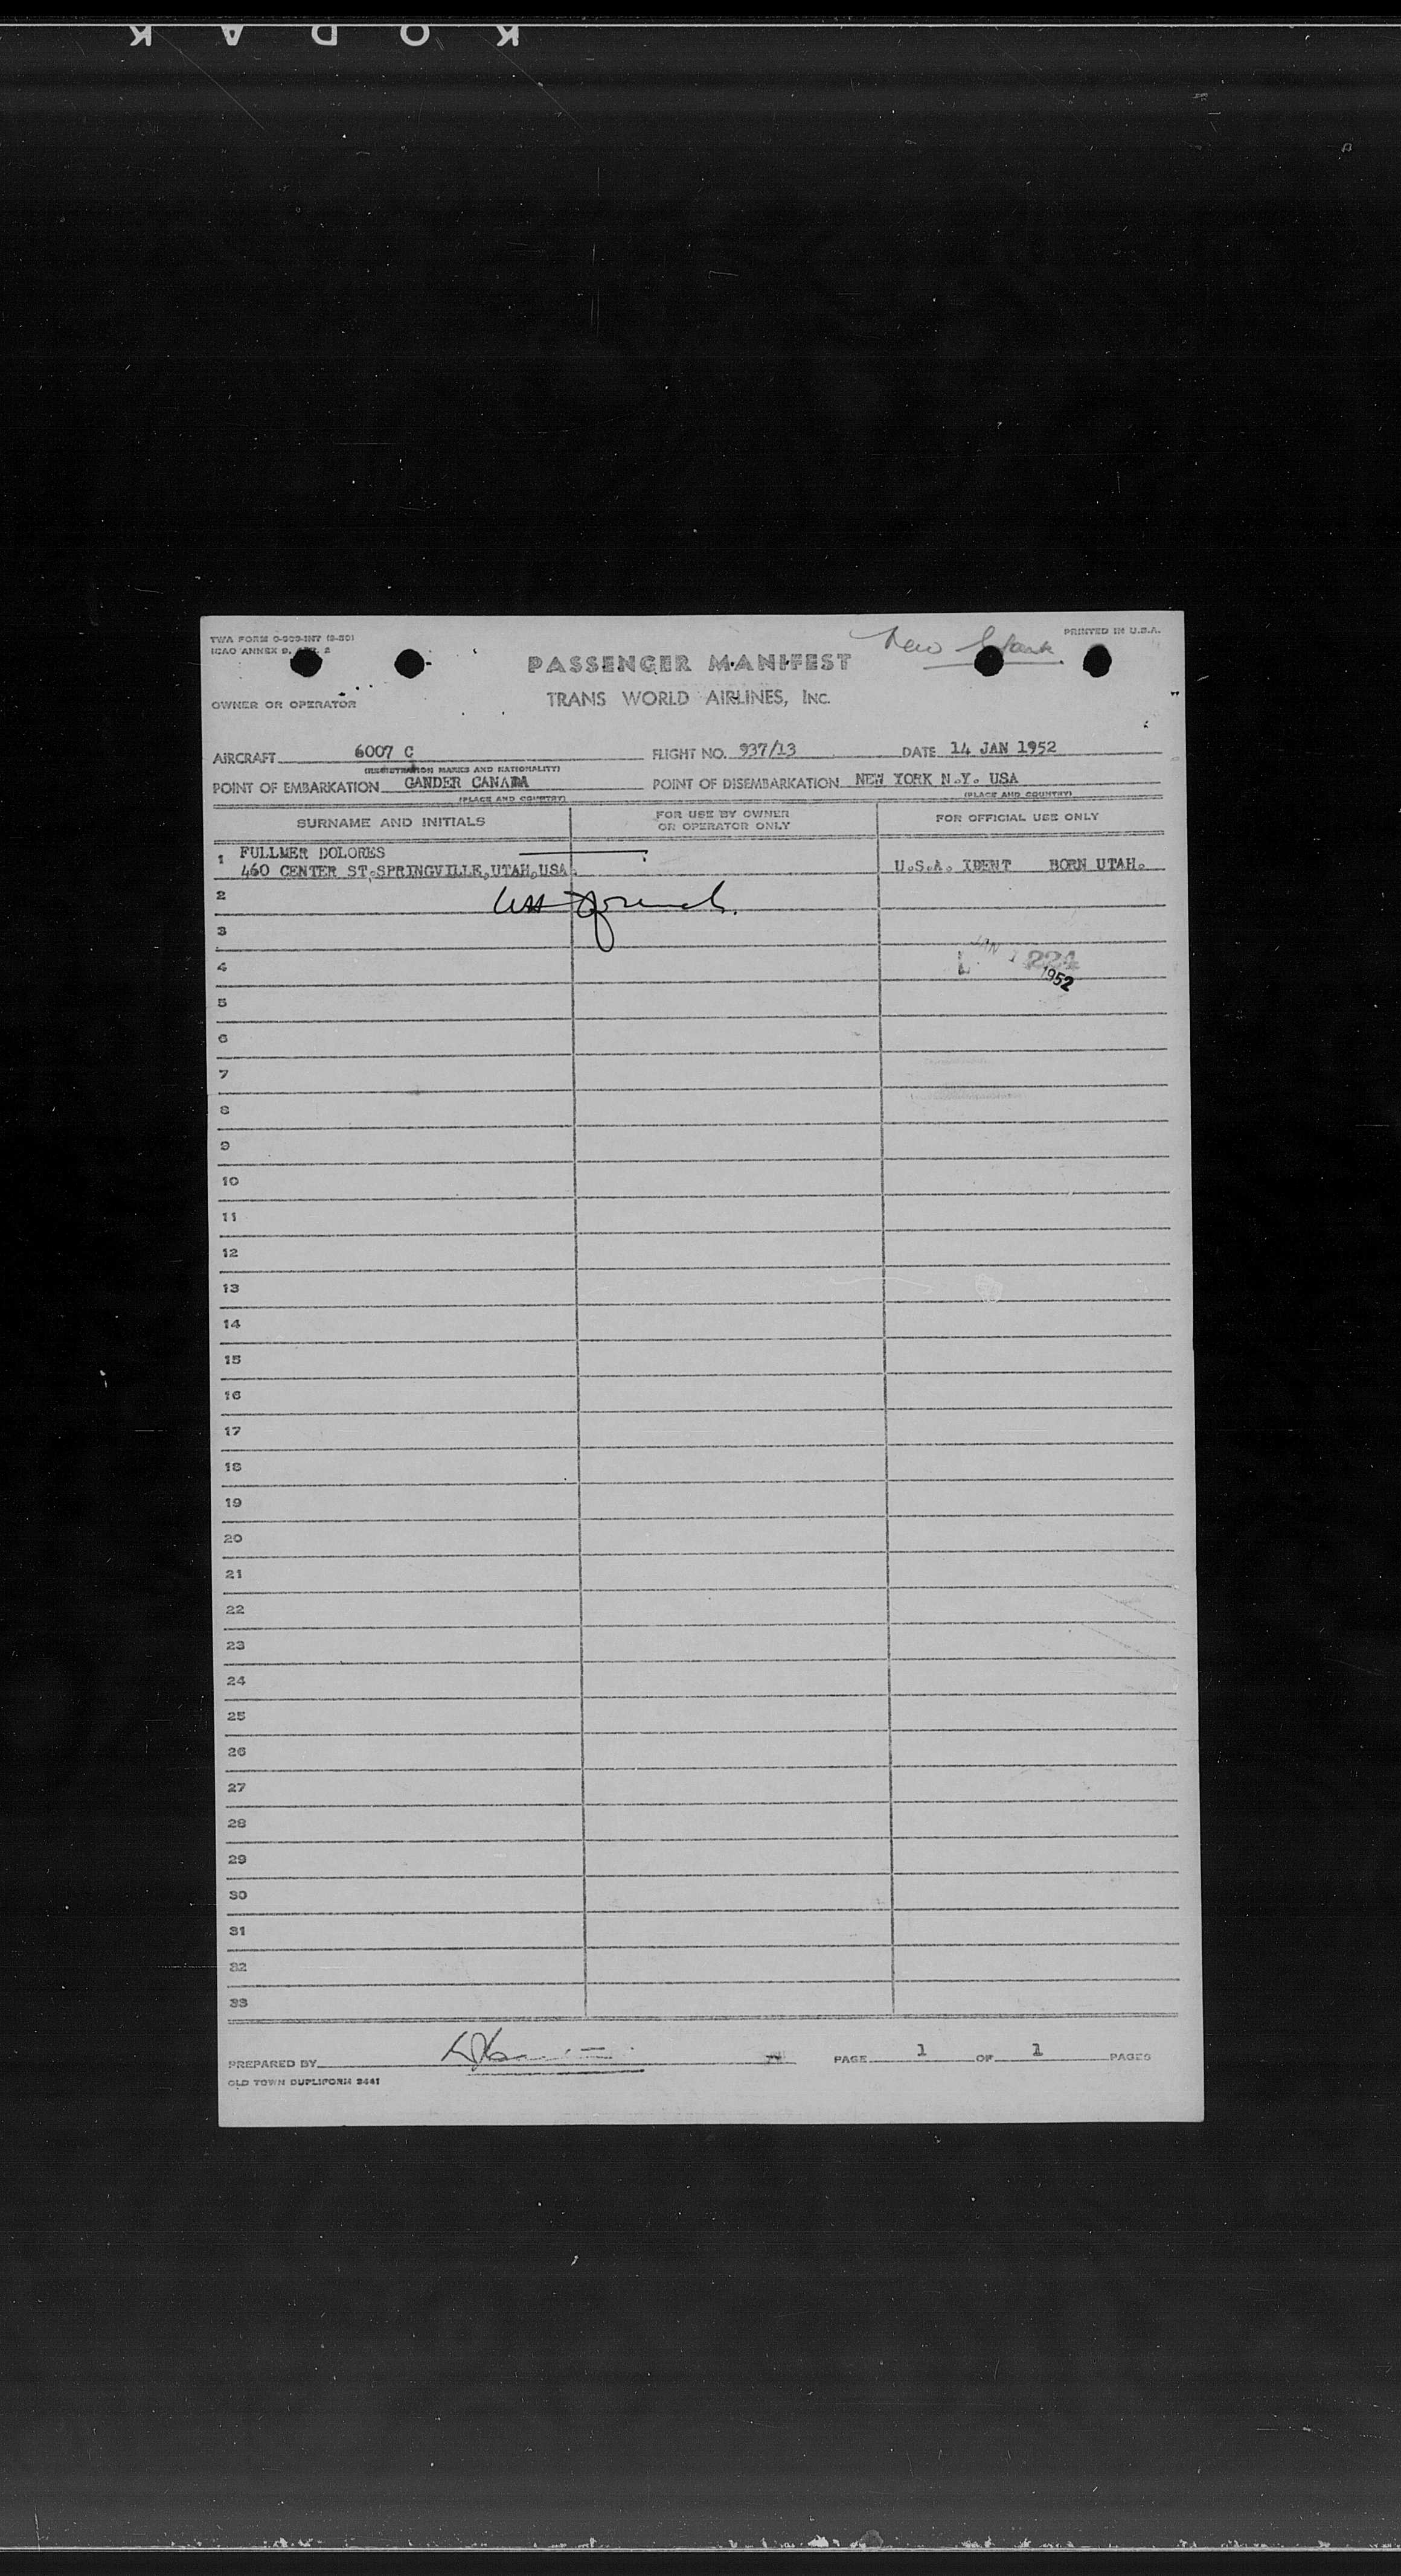 KODAK
TWA FORM O-909-INT (8-50)
ICAO ANNEX 9, APP. 2
PRINTED IN U.S.A.
New
PASSENGER MANIFEST
TRANS WORLD AIRLINES, INC.
OWNER OR OPERATOR
AIRCRAFT 6007 C FLIGHT NO. 937/13 DATE 14 JAN 1952
(REGISTRATION MARKS AND NATIONALITY)
POINT OF EMBARKATION GANDER CANADA POINT OF DISEMBARKATION NEW YORK N.Y. USA
(PLACE AND COUNTRY) (PLACE AND COUNTRY)
SURNAME AND INITIALS FOR USE BY OWNER OR OPERATOR ONLY FOR OFFICIAL USE ONLY
1 FULLMER DOLORES
460 CENTER ST.SPRINGVILLE,UTAH,USA. U.S.A. IDENT BORN UTAH.
2
3
4 JAN 1 224
1952
5
6
7
8
9
10
11
12
13
14
15
16
17
18
19
20
21
22
23
24
25
26
27
28
29
30
31
32
33
PREPARED BY PAGE 1 OF 1 PAGES
OLD TOWN DUPLIFORM 2441